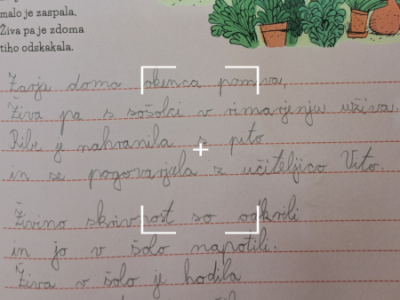 malo je zaspala.
Živa pa je zdoma
tiho odskakala.
Zarja doma okenca pomiva,
Živa pa s sošolci v rimarjenju uživa.
Ribe je nahranila s pito
in se pogovarjala z učiteljico Vito.
Živino skrivnost so odkrili
in jo v šolo napotili.
Živa v šolo je hodila